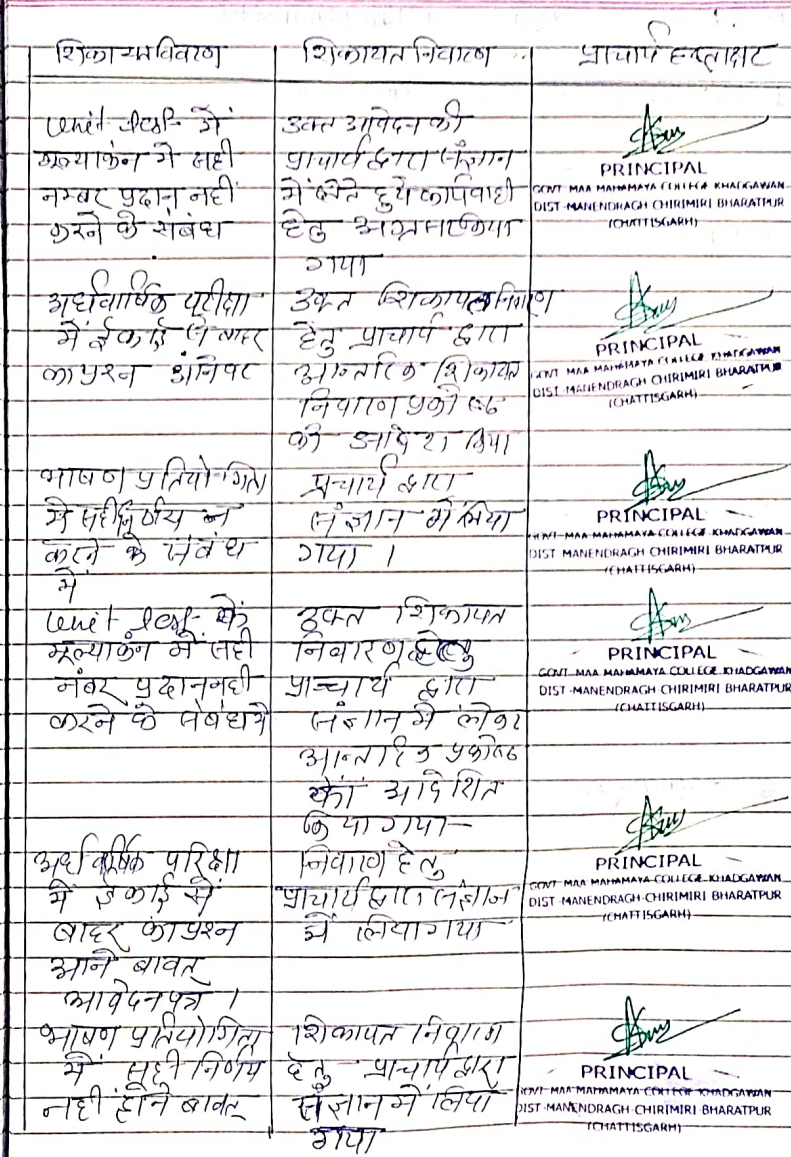 शिकायत विवरण
शिकायत निवारण
प्राचार्य हस्ताक्षर
unit test में
मूल्याकंन मे सही
नम्बर प्रदान नहीं
करने के संबंध
उक्त आवेदन को
प्राचार्य द्वारा संज्ञान
में लेते हुये कार्यवाही
हेतु
गया
PRINCIPAL
GOVT MAA MAHAMAYA COLLEGE KHADGAWAN
DIST-MANENDRAGH CHIRIMIRI BHARATPUR
(CHATTISGARH)
अर्धवार्षिक परीक्षा
में ईकाई से बाहर
का प्रश्न
उक्त शिकायत निवारण
हेतु प्राचार्य द्वारा
आन्तरिक शिकायत
निवारण प्रकोष्ठ
को आदेश किया
PRINCIPAL
GOVT MAA MAHAMAYA COLLEGE KHADGAWAN
DIST MANENDRAGH CHIRIMIRI BHARATPUR
(CHATTISGARH)
भाषण प्रतियोगिता
मे सही निर्णय न
करने के संबंध
में
प्रचार्य द्वारा
संज्ञान में लिया
गया ।
PRINCIPAL
GOVT MAA MAHAMAYA COLLEGE KHADGAWAN
DIST MANENDRAGH CHIRIMIRI BHARATPUR
(CHATTISGARH)
unit test के
मूल्याकंन में सही
नंबर प्रदान नही
करने के संबंध में
उक्त शिकायत
निवारण हेतु
प्राचार्य द्वारा
संज्ञान मे लेकर
आन्तरिक प्रकोष्ठ
को आदेशित
किया गया-
PRINCIPAL
GOVT MAA MAHAMAYA COLLEGE KHADGAWAN
DIST-MANENDRAGH CHIRIMIRI BHARATPUR
(CHATTISGARH)
अर्धवार्षिक परिक्षा
में इकाई से
बाहर का प्रश्न
आने बावत्
आवेदन पत्र ।
निवारण हेतु
प्राचार्य द्वारा संज्ञान
में लिया गया
PRINCIPAL
GOVT MAA MAHAMAYA COLLEGE KHADGAWAN
DIST-MANENDRAGH-CHIRIMIRI BHARATPUR
(CHATTISGARH)
भाषण प्रतियोगिता
में सही निर्णय
नही होने बावत्
शिकायत निवारण
हेतु प्राचार्य द्वारा
संज्ञान में लिया
गया
PRINCIPAL
GOVT MAA MAHAMAYA COLLEGE KHADGAWAN
DIST-MANENDRAGH-CHIRIMIRI BHARATPUR
(CHATTISGARH)